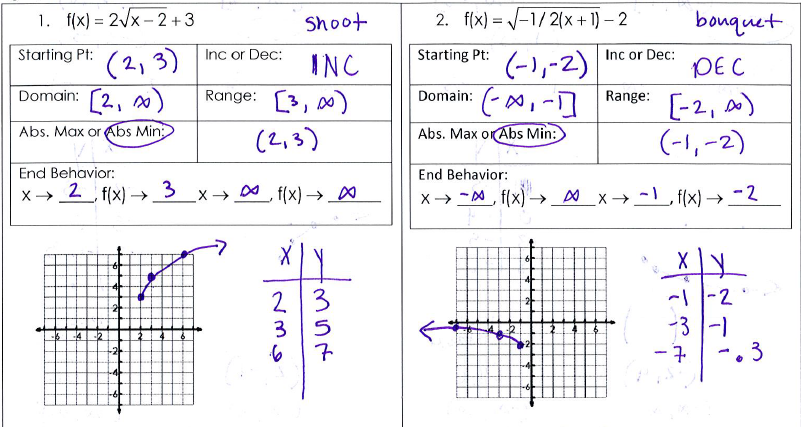 1. f(x) = 2√x – 2 + 3 shoot
Starting Pt: (2, 3) Inc or Dec: INC
Domain: [2, ∞) Range: [3, ∞)
Abs. Max or Abs Min: (2,3)
End Behavior:
x → 2, f(x) → 3 x → ∞, f(x) → ∞
X Y
2 3
3 5
6 7
6
4
2
-6 -4 -2 2 4 6
-2
-4
-6
2. f(x) = √–1/2(x + 1) – 2 bouquet
Starting Pt: (-1,-2) Inc or Dec: DEC
Domain: (-∞, -1] Range: [-2, ∞)
Abs. Max or Abs Min: (-1,-2)
End Behavior:
x → -∞, f(x) → ∞ x → -1, f(x) → -2
X Y
-1 -2
-3 -1
-7 -.3
6
4
2
-6 -2 2 4 6
-2
-4
-6